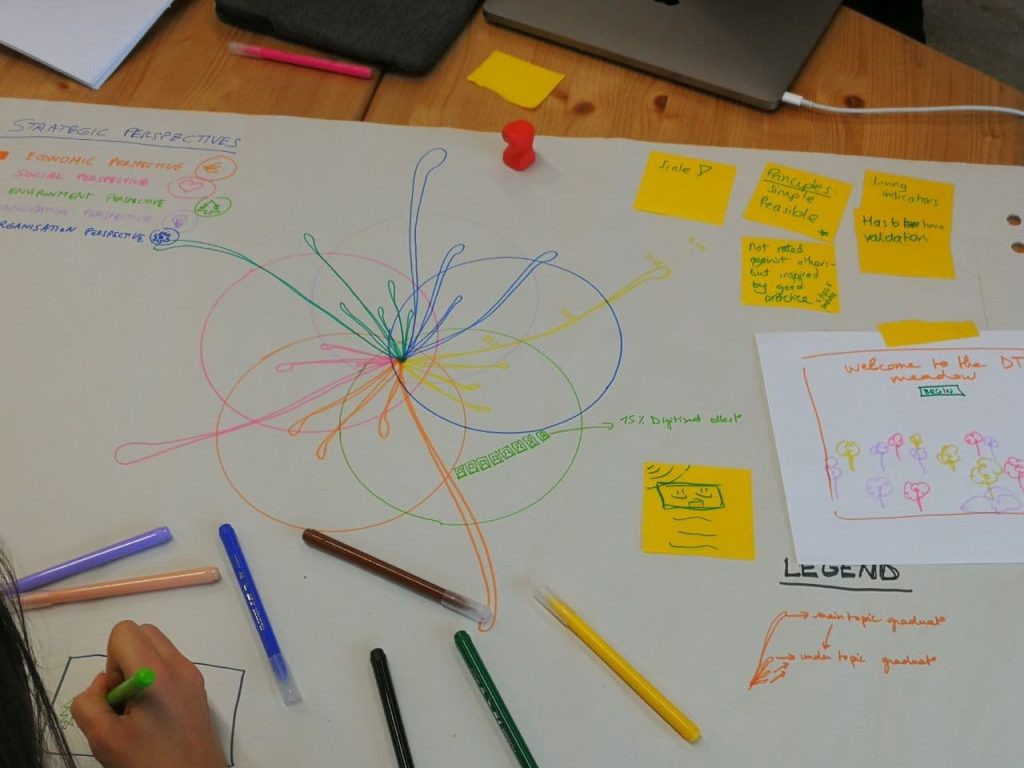 STRATEGIC PERSPECTIVES
ECONOMIC PERSPECTIVE €
SOCIAL PERSPECTIVE
ENVIRONMENT PERSPECTIVE
PERSPECTIVE
ORGANISATION PERSPECTIVE
Scale
Principles:
Simple
Feasible
Living
indicators
validation
Not rated
against others
but inspired
by good
practice
15% Digitized
welcome to the DT
meadow
BEGIN
LEGEND
main topic graduate
under topic graduate